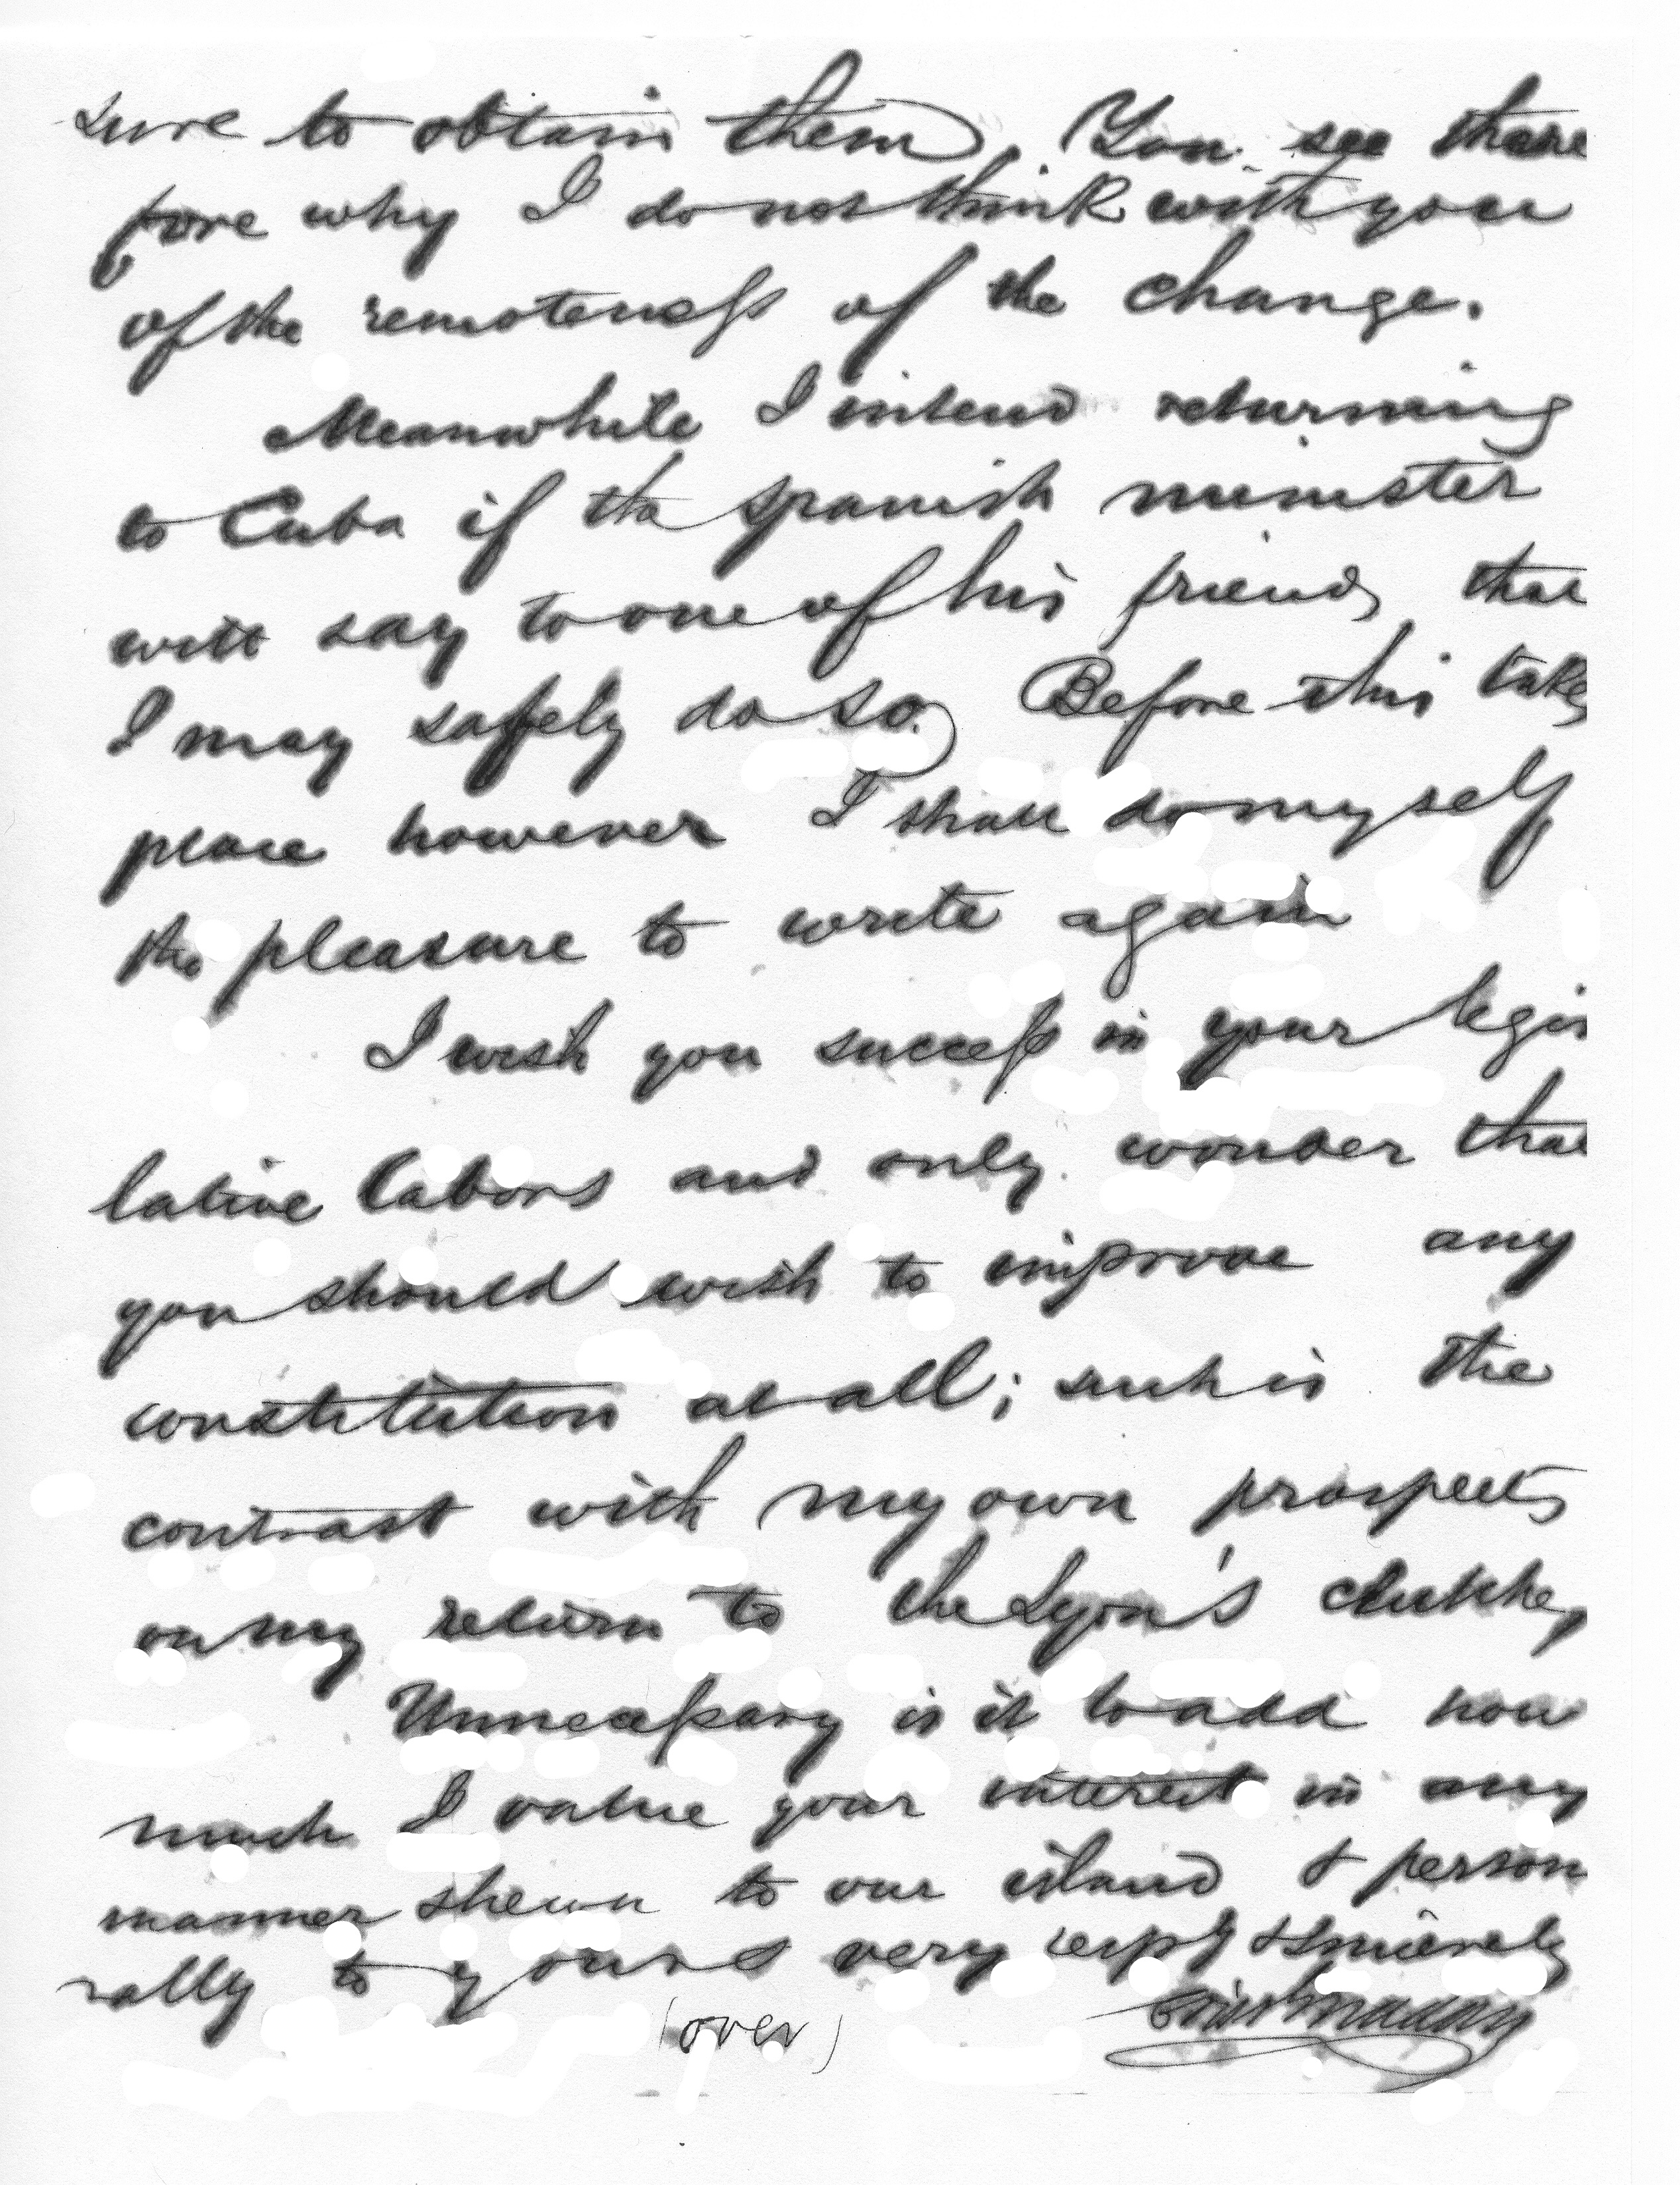 sure to obtain them. You see there
fore why I do not think with you
of the remoteness of the change.
Meanwhile I intend returning
to Cuba if the Spanish minister
will say to one of his friends that
I may safely do so. Before this takes
place however I shall do myself
the pleasure to write again
I wish you success in your legis
lative labors and only wonder that
you should wish to improve any
constitution at all; such is the
contrast with my own prospects
on my return to the Lyon's
Unnecessary is it to add how
much I value your interest in any
manner shewn to our island & person
nally to yours very resply & sincerely
(over)